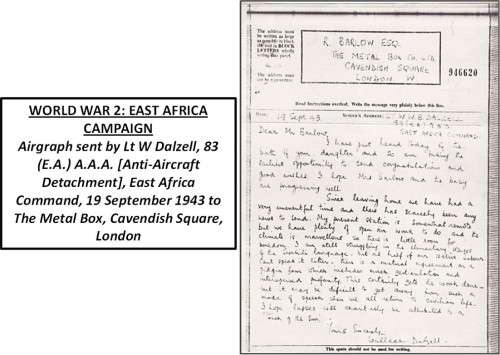 WORLD WAR 2: EAST AFRICA
CAMPAIGN
Airgraph sent by Lt W Dalzell, 83
(E.A.) A.A.A. [Anti-Aircraft
Detachment], East Africa
Command, 19 September 1943 to
The Metal Box, Cavendish Square,
London
The address must
be written as large
as possible in block
letters
BLOCK
The address must
R. BARLOW ESQ.
THE METAL BOX CO. LTD.
CAVENDISH SQUARE
LONDON. W.
946620
Read instructions overleaf. Write the message very plainly below this line.
19 Sept. 43. Sender's Address: LT W. DALZELL
EAST AFRICA COMMAND.
Dear Mr Barlow,
I have just heard today of the
birth of your daughter and so am taking the
earliest opportunity to send congratulations and
good wishes. I hope Mrs Barlow and the baby
are progressing well.
Since leaving home we have had a
very uneventful time and there has scarcely been any
news to send. My present station is somewhat remote
but we have plenty of open air work to do and the
climate is marvellous so there is little room for
I am still struggling in the elementary stages
of the language, but as half of our native
speak it there is a mutual agreement on a
pidgin form which includes much gesticulation and
profanity. This certainly gets the work done
but it may be difficult to get away from such a
mode of speech when we all return to civilian life.
I hope lapses will charitably be attributed to a
"touch of the Sun".
Yours Sincerely,
Dalzell.
This space should not be used for writing.